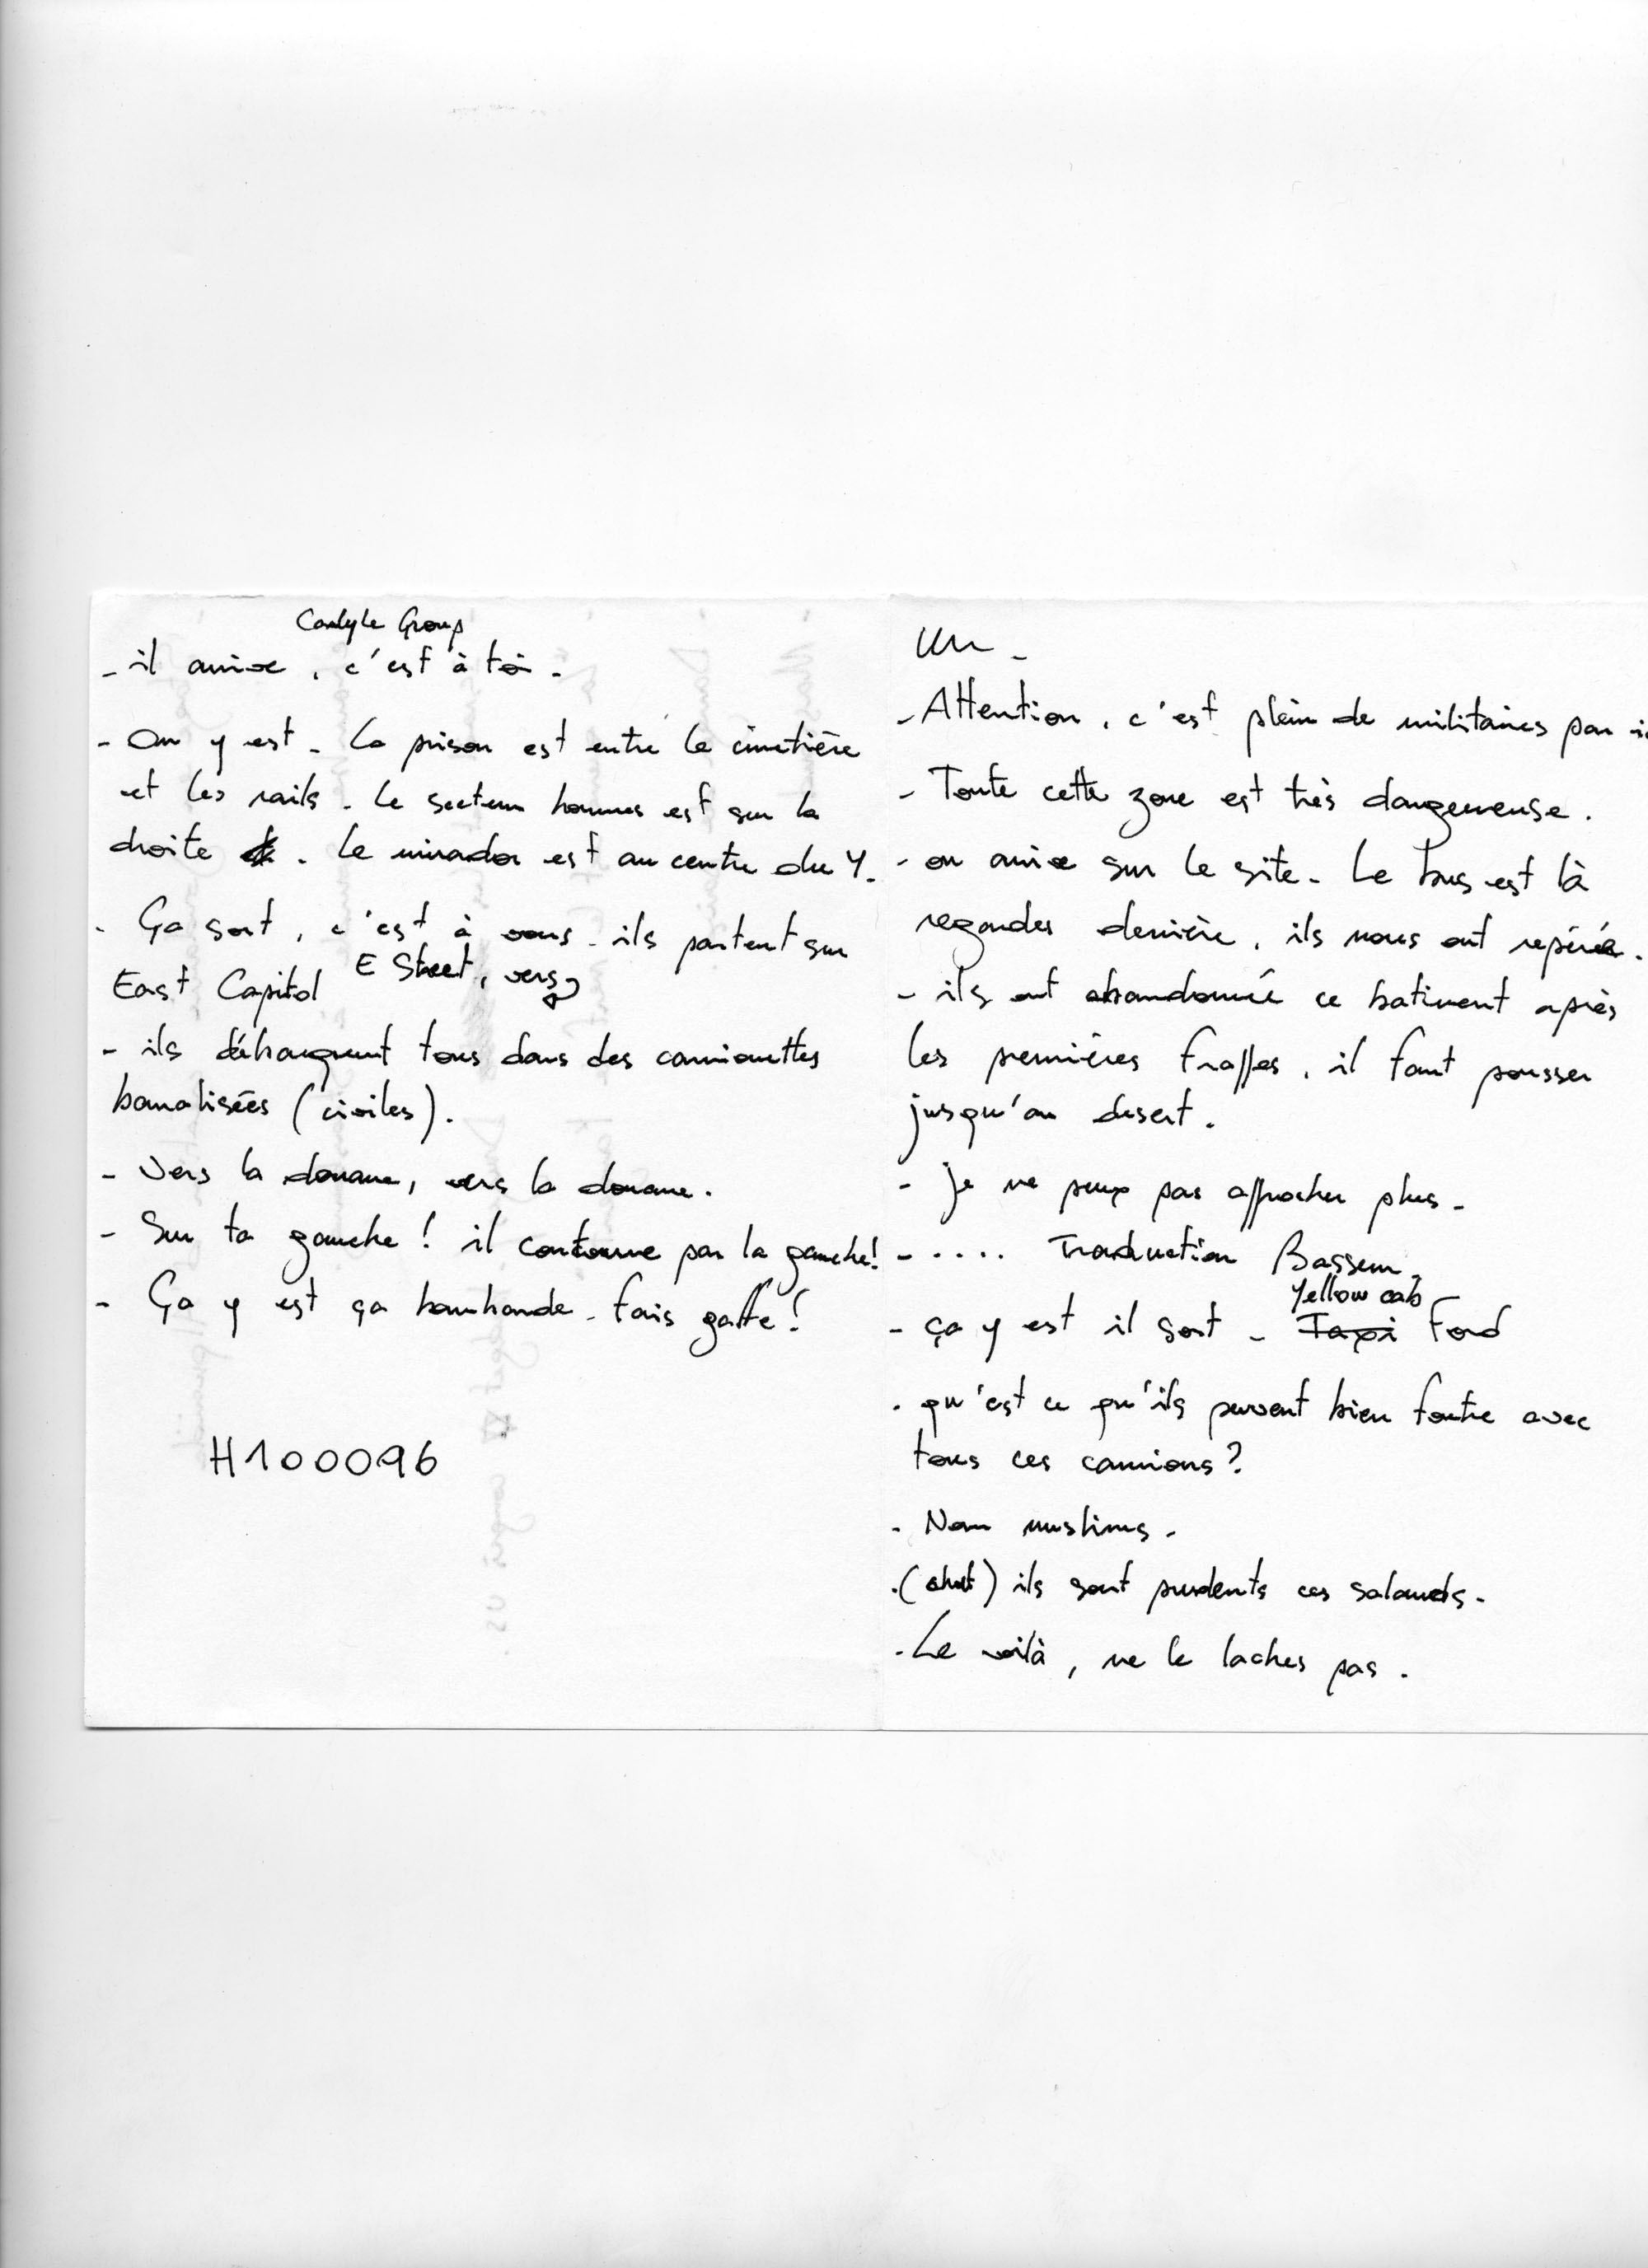 Carlyle Group
- il arrive, c'est à toi.
- On y est. La prison est entre le cimetière
et les rails. Le secteur hommes est sur la
droite. Le mirador est au centre du Y.
- Ça sort, c'est à vous. ils partent sur
E Street, vers
East Capitol
- ils débarquent tous dans des camionettes
banalisées (civiles).
- Vers la douane, vers la douane.
- Sur ta gauche ! il contourne par la gauche !
- Ça y est ça bombarde. fais gaffe !
H100096
- Attention, c'est plein de militaires par
- Toute cette zone est très dangereuse.
- on arrive sur le site. Le bus est là
regardes derrière, ils nous ont repéré.
- ils ont abandonné ce batiment après
les premières frappes, il faut pousser
jusqu'au desert.
- je ne peux pas approcher plus.
- ..... Traduction Bassem.
Yellow cab
- ça y est il sort - Taxi Ford
- qu'est ce qu'ils peuvent bien foutre avec
tous ces camions ?
- Non muslims.
- (chut) ils sont prudents ces salauds.
- Le voilà, ne le laches pas.